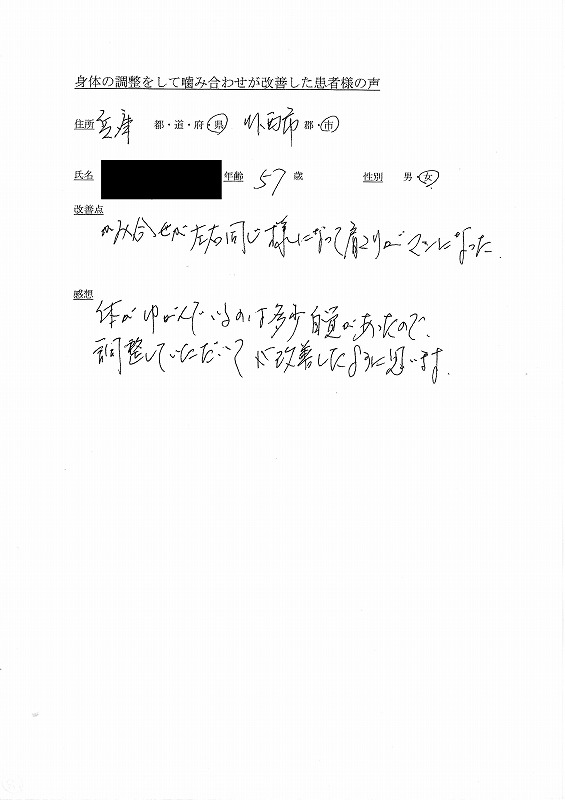 身体の調整をして噛み合わせが改善した患者様の声
住所 兵庫 都・道・府・県 川西市 郡・市
氏名 年齢 57 歳 性別 男・女
改善点
かみ合せが左右同じ様になって肩こりがマシになった
感想
体がゆがんでいるのは多少自覚があったので、
調整していただいて 改善したように思います。